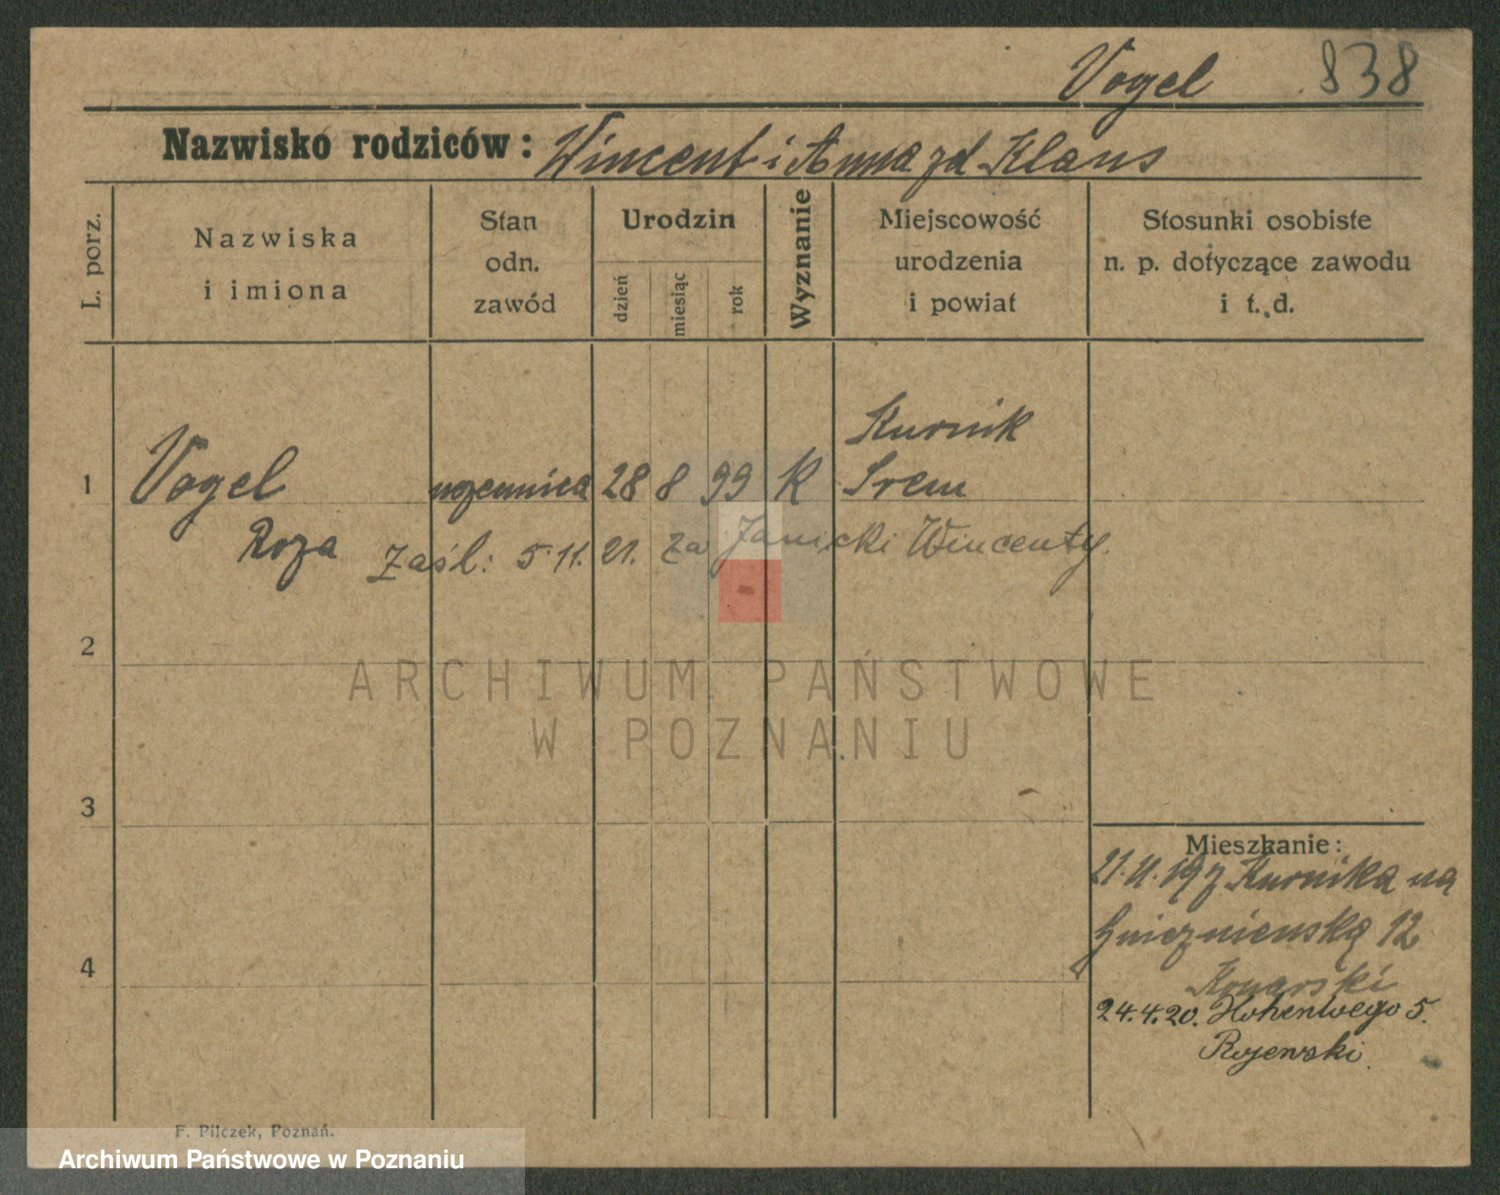 Vogel 838
Nazwisko rodziców: Wincent i Anna zd Klaus
L. porz.
Nazwiska
i imiona
Stan
odn.
zawód
Urodzin
dzień
miesiąc
rok
Wyznanie
Miejscowość
urodzenia
i powiat
Stosunki osobiste
n. p. dotyczące zawodu
i t. d.
Kurnik
1 Vogel uczennica 28 8 99 K Srem
Roza Zaśl: 5.11.21. za Janicki Wincenty.
2
ARCHIWUM PAŃSTWOWE
W POZNANIU
3
Mieszkanie:
21.11.19 z Kurnika na
Gnieznienską 12
4
Konarski
24.4.20. Hohenlwego 5.
Rojewski.
F. Pilczek, Poznań.
Archiwum Państwowe w Poznaniu